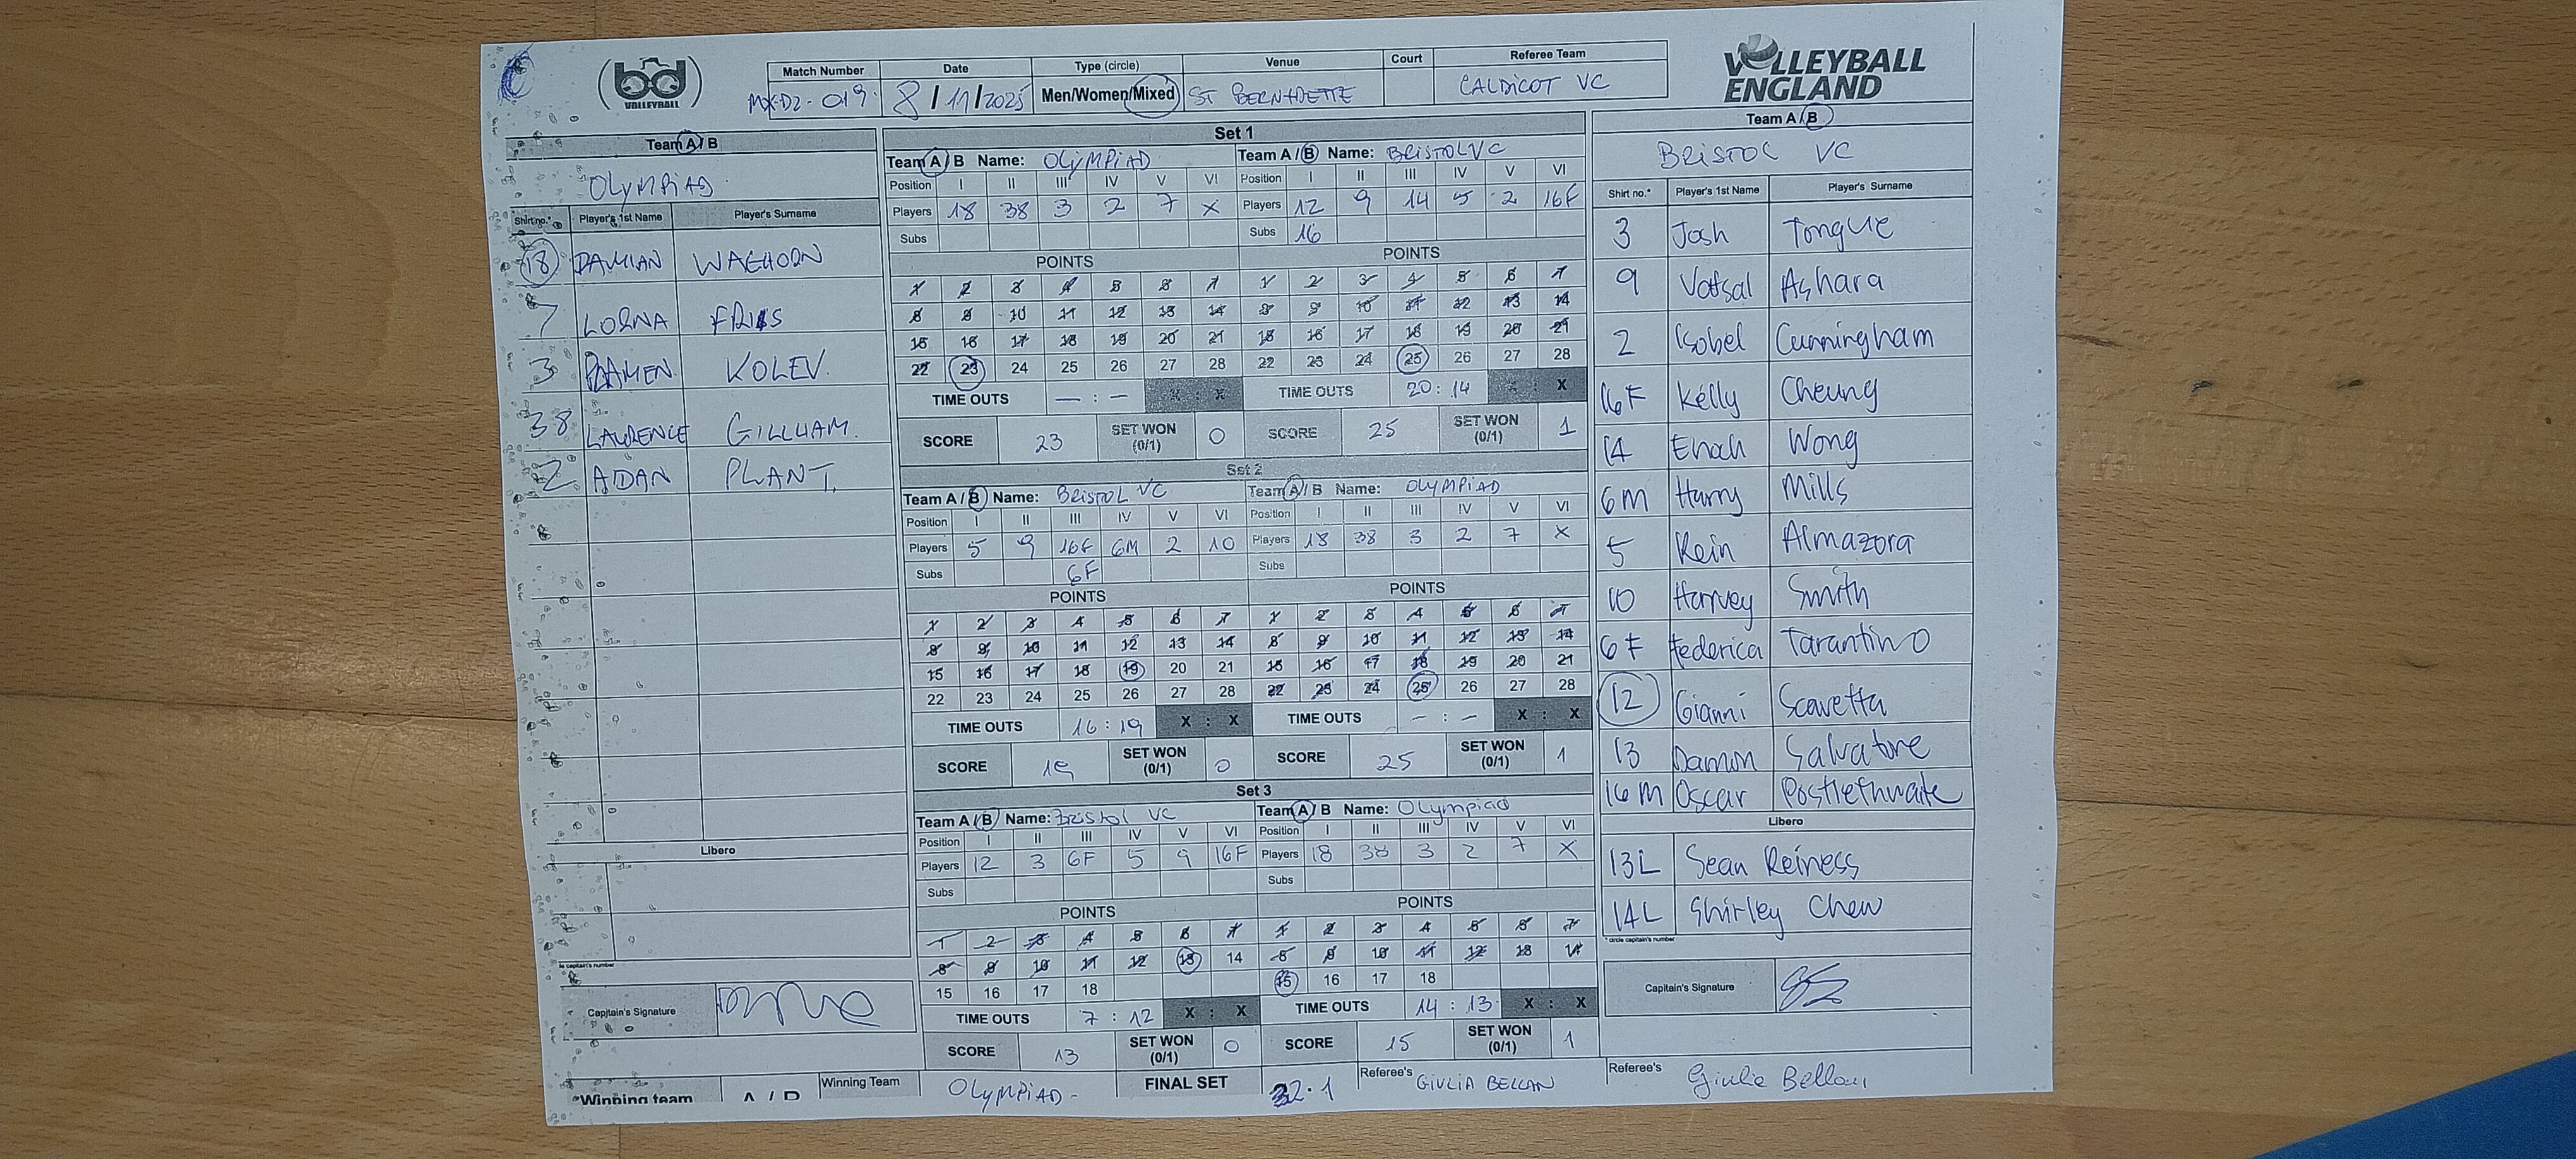 bd
VOLLEYBALL
Match Number Date Type (circle) Venue Court Referee Team
MX-D2-019 8/11/2025 Men/Women/Mixed ST BERNADETTE CALDICOT VC
VOLLEYBALL
ENGLAND
Team A / B
OLYMPIAD
Shirt no.* Player's 1st Name Player's Surname
18 DAMIAN WAGHORN
7 LORNA
3 PLAMEN KOLEV.
38 LAWRENCE GILLHAM.
2 AIDAN PLANT.
Libero
Captain's Signature
*Winning team A / B Winning Team OLYMPIAD -
Set 1
Team A / B Name: OLYMPIAD
Position I II III IV V VI
Players 18 38 3 2 7 X
Subs
POINTS
1 2 3 4 5 6 7
8 9 10 11 12 13 14
15 16 17 18 19 20 21
22 23 24 25 26 27 28
TIME OUTS — : — X : X
SCORE 23 SET WON (0/1) 0
Team A / B Name: BRISTOL VC
Position I II III IV V VI
Players 12 9 14 5 2 16F
Subs 16
POINTS
1 2 3 4 5 6 7
8 9 10 11 12 13 14
15 16 17 18 19 20 21
22 23 24 25 26 27 28
TIME OUTS 20 : 14 X
SCORE 25 SET WON (0/1) 1
Set 2
Team A / B Name: BRISTOL VC
Position I II III IV V VI
Players 5 9 16F 6M 2 10
Subs 6F
POINTS
1 2 3 4 5 6 7
8 9 10 11 12 13 14
15 16 17 18 19 20 21
22 23 24 25 26 27 28
TIME OUTS 16 : 19 X : X
SCORE 19 SET WON (0/1) 0
Team A / B Name: OLYMPIAD
Position I II III IV V VI
Players 18 38 3 2 7 X
Subs
POINTS
1 2 3 4 5 6 7
8 9 10 11 12 13 14
15 16 17 18 19 20 21
22 23 24 25 26 27 28
TIME OUTS — : — X : X
SCORE 25 SET WON (0/1) 1
Set 3
Team A / B Name: Bristol VC
Position I II III IV V VI
Players 12 3 6F 5 9 16F
Subs
POINTS
1 2 3 4 5 6 7
8 9 10 11 12 13 14
15 16 17 18
TIME OUTS 7 : 12 X : X
SCORE 13 SET WON (0/1) 0
Team A / B Name: Olympiad
Position I II III IV V VI
Players 18 38 3 2 7 X
Subs
POINTS
1 2 3 4 5 6 7
8 9 10 11 12 13 14
15 16 17 18
TIME OUTS 14 : 13 X : X
SCORE 15 SET WON (0/1) 1
FINAL SET 2.1
Referee's GIULIA BELLAN
Team A / B
BRISTOL VC
Shirt no.* Player's 1st Name Player's Surname
3 Josh Tongue
9 Vatsal Ashara
2 Isobel Cunningham
16F Kelly Cheung
14 Enoch Wong
6M Harry Mills
5 Rein Almazora
10 Harvey Smith
6F Federica Tarantino
12 Gianni Scavetta
13 Damon Salvatore
16M Oscar Postlethwaite
Libero
13L Sean Reiness
14L Shirley Chew
* circle captain's number
Captain's Signature
Referee's Giulia Bellan